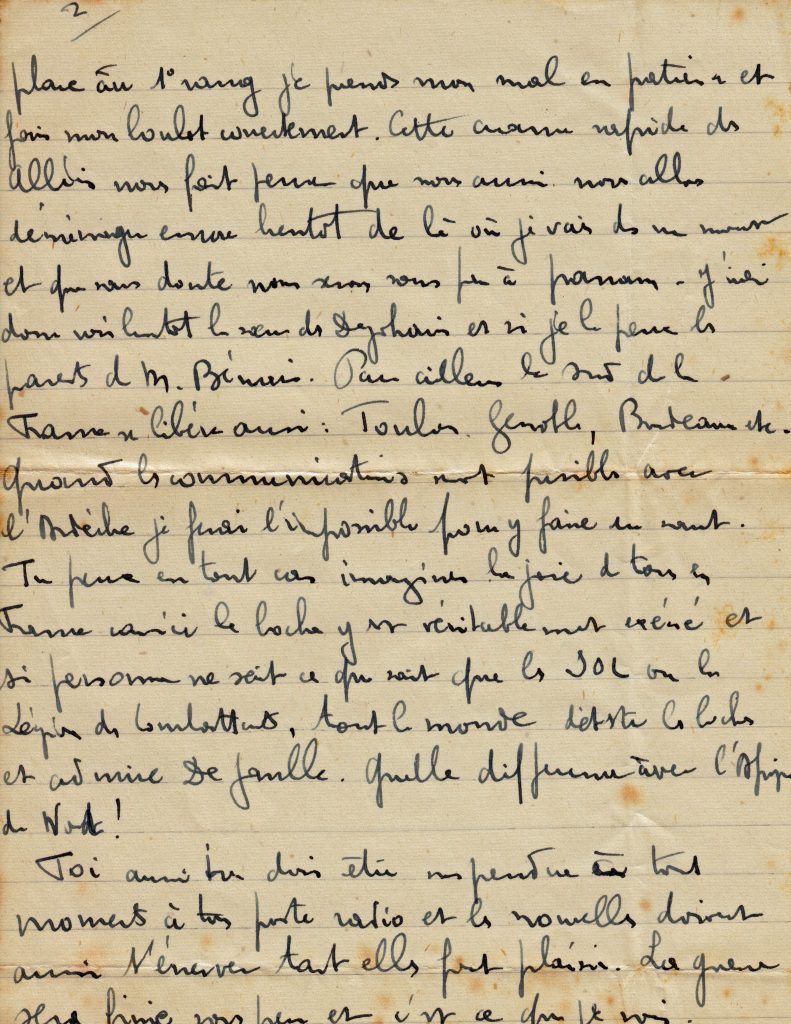 2
place au 1° rang je prends mon mal en patience et
fais mon boulot correctement. Cette avance rapide des
Alliés nous fait penser que nous aussi nous allons
déménager encore bientôt de là où je vais ds un moment
et que sans doute nous serons sous peu à panam. J'irai
donc voir bientôt la sœur de et si je le peux les
parents de M. Par ailleurs le sud de la
France se libère aussi : Toulon. Grenoble, Bordeaux etc.
Quand les communications seront possibles avec
l'Ardèche je ferai l'impossible pour y faire un saut.
Tu peux en tout cas imaginer la joie de tous en
France car ici le boche y est véritablement exécré et
si personne ne sait ce que sait que les SOL ou la
Légion des Combattants, tout le monde déteste les boches
et admire De Gaulle. Quelle différence avec l'Afrique
du Nord!
Toi aussi tu dois être suspendue à tout
moment à ton poste radio et les nouvelles doivent
aussi t'énerver tant elles font plaisir. La guerre
sera finie sous peu et c'est ce que je vois.